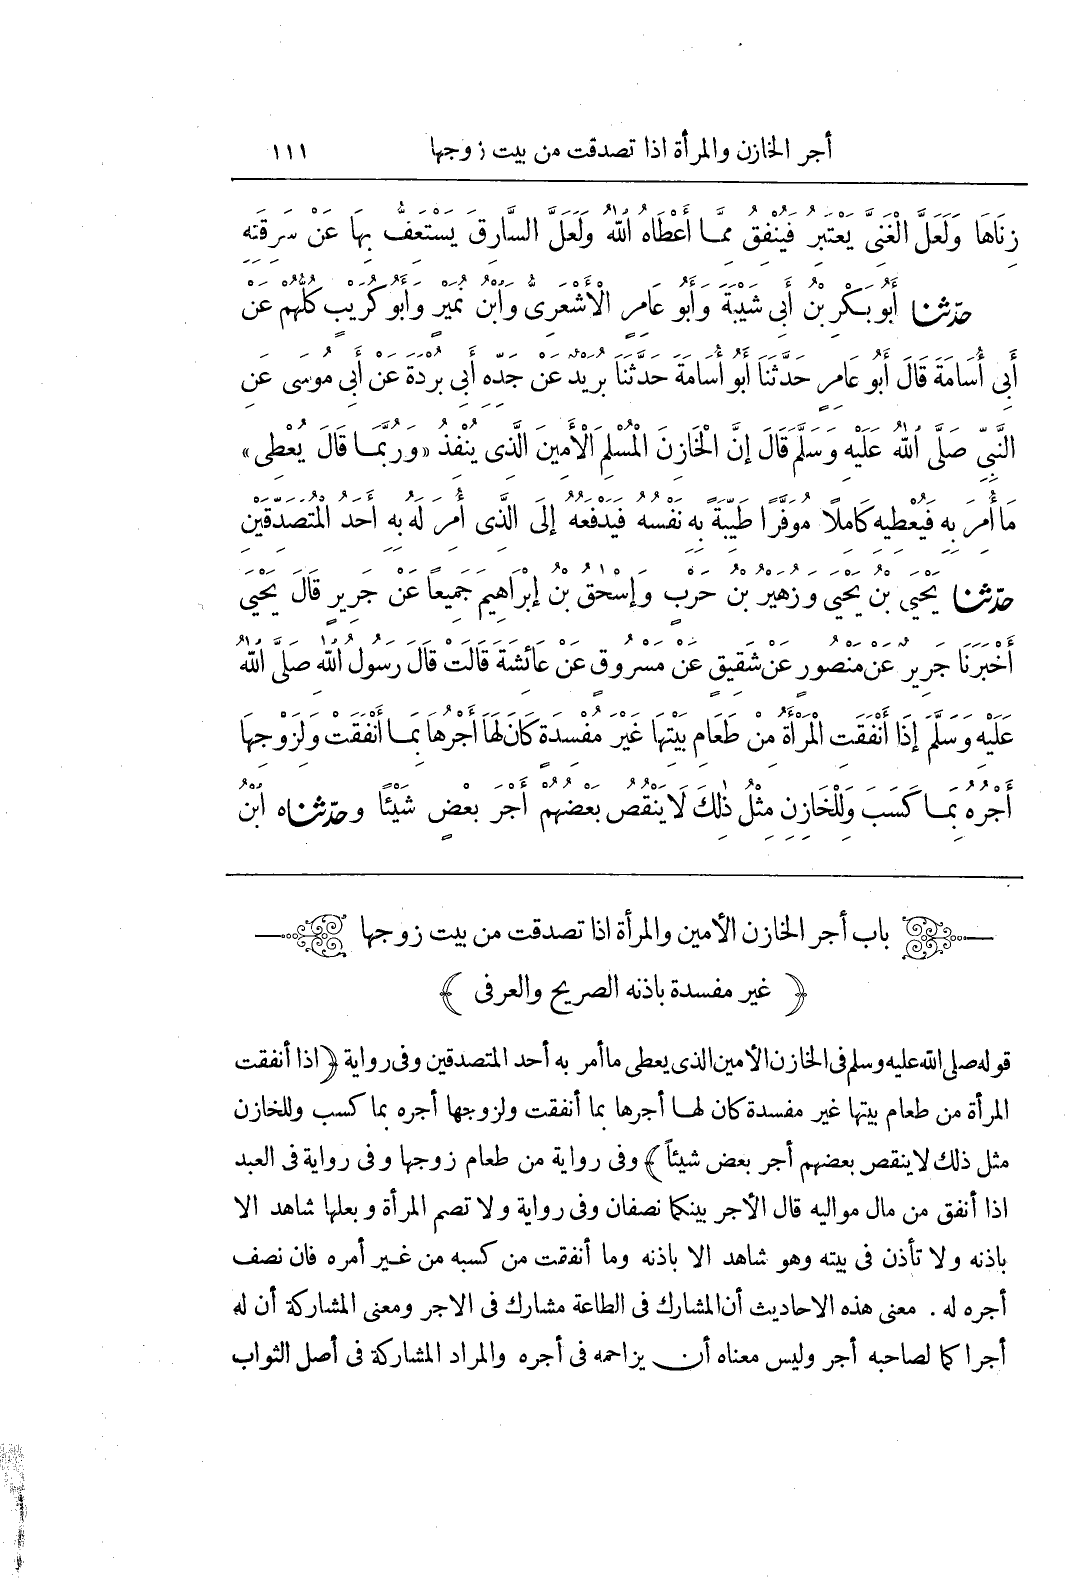 أجر الخازن والمرأة اذا تصدقت من بيت زوجها ١١١
زِنَاهَا وَلَعَلَّ الْغَنِىَّ يَعْتَبِرُ فَيُنْفِقُ مِمَّا أَعْطَاهُ اللّٰهُ وَلَعَلَّ السَّارِقَ يَسْتَعِفُّ بِهَا عَنْ سَرِقَتِهِ
حدّثنا أَبُو بَكْرِ بْنُ أَبِى شَيْبَةَ وَأَبُو عَامِرٍ الْأَشْعَرِىُّ وَابْنُ نُمَيْرٍ وَأَبُو كُرَيْبٍ كُلُّهُمْ عَنْ
أَبِى أُسَامَةَ قَالَ أَبُو عَامِرٍ حَدَّثَنَا أَبُو أُسَامَةَ حَدَّثَنَا بُرَيْدٌ عَنْ جَدِّهِ أَبِى بُرْدَةَ عَنْ أَبِى مُوسَى عَنِ
النَّبِىِّ صَلَّى اللّٰهُ عَلَيْهِ وَسَلَّمَ قَالَ إِنَّ الْخَازِنَ الْمُسْلِمَ الْأَمِينَ الَّذِى يُنْفِذُ «وَرُبَّمَا قَالَ يُعْطِى»
مَا أُمِرَ بِهِ فَيُعْطِيهِ كَامِلًا مُوَفَّرًا طَيِّبَةً بِهِ نَفْسُهُ فَيَدْفَعُهُ إِلَى الَّذِى أُمِرَ لَهُ بِهِ أَحَدُ الْمُتَصَدِّقَيْنِ
حدّثنا يَحْيَى بْنُ يَحْيَى وَزُهَيْرُ بْنُ حَرْبٍ وَإِسْحٰقُ بْنُ إِبْرَاهِيمَ جَمِيعًا عَنْ جَرِيرٍ قَالَ يَحْيَى
أَخْبَرَنَا جَرِيرٌ عَنْ مَنْصُورٍ عَنْ شَقِيقٍ عَنْ مَسْرُوقٍ عَنْ عَائِشَةَ قَالَتْ قَالَ رَسُولُ اللّٰهِ صَلَّى اللّٰهُ
عَلَيْهِ وَسَلَّمَ إِذَا أَنْفَقَتِ الْمَرْأَةُ مِنْ طَعَامِ بَيْتِهَا غَيْرَ مُفْسِدَةٍ كَانَ لَهَا أَجْرُهَا بِمَا أَنْفَقَتْ وَلِزَوْجِهَا
أَجْرُهُ بِمَا كَسَبَ وَلِلْخَازِنِ مِثْلُ ذٰلِكَ لَا يَنْقُصُ بَعْضُهُمْ أَجْرَ بَعْضٍ شَيْئًا وحدّثناه ابْنُ
باب أجر الخازن الأمين والمرأة اذا تصدقت من بيت زوجها
﴿ غير مفسدة باذنه الصريح والعرفى ﴾
قوله صلى الله عليه وسلم فى الخازن الأمين الذى يعطى ما أمر به أحد المتصدقين وفى رواية ﴿اذا أنفقت
المرأة من طعام بيتها غير مفسدة كان لها أجرها بما أنفقت ولزوجها أجره بما كسب وللخازن
مثل ذلك لاينقص بعضهم أجر بعض شيئاً﴾ وفى رواية من طعام زوجها وفى رواية فى العبد
اذا أنفق من مال مواليه قال الأجر بينكما نصفان وفى رواية ولا تصم المرأة وبعلها شاهد الا
باذنه ولا تأذن فى بيته وهو شاهد الا باذنه وما أنفقت من كسبه من غير أمره فان نصف
أجره له . معنى هذه الاحاديث أن المشارك فى الطاعة مشارك فى الاجر ومعنى المشاركة أن له
أجرا كما لصاحبه أجر وليس معناه أن يزاحمه فى أجره والمراد المشاركة فى أصل الثواب